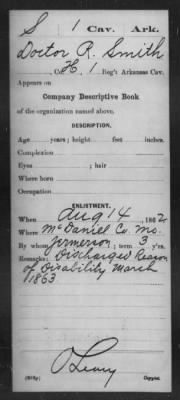 S 1 Cav. Ark.
Doctor R. Smith
, Co. H, 1 Reg't Arkansas Cav.
Appears on
Company Descriptive Book
of the organization named above.
DESCRIPTION.
Age years; height feet inches.
Complexion
Eyes ; hair
Where born
Occupation
ENLISTMENT.
When Aug 14, 1862.
Where McDaniel Co. Mo.
By whom ; term 3 y'rs.
Remarks: Discharged Reason
of Disability March
1863
O'Leary
Copyist.